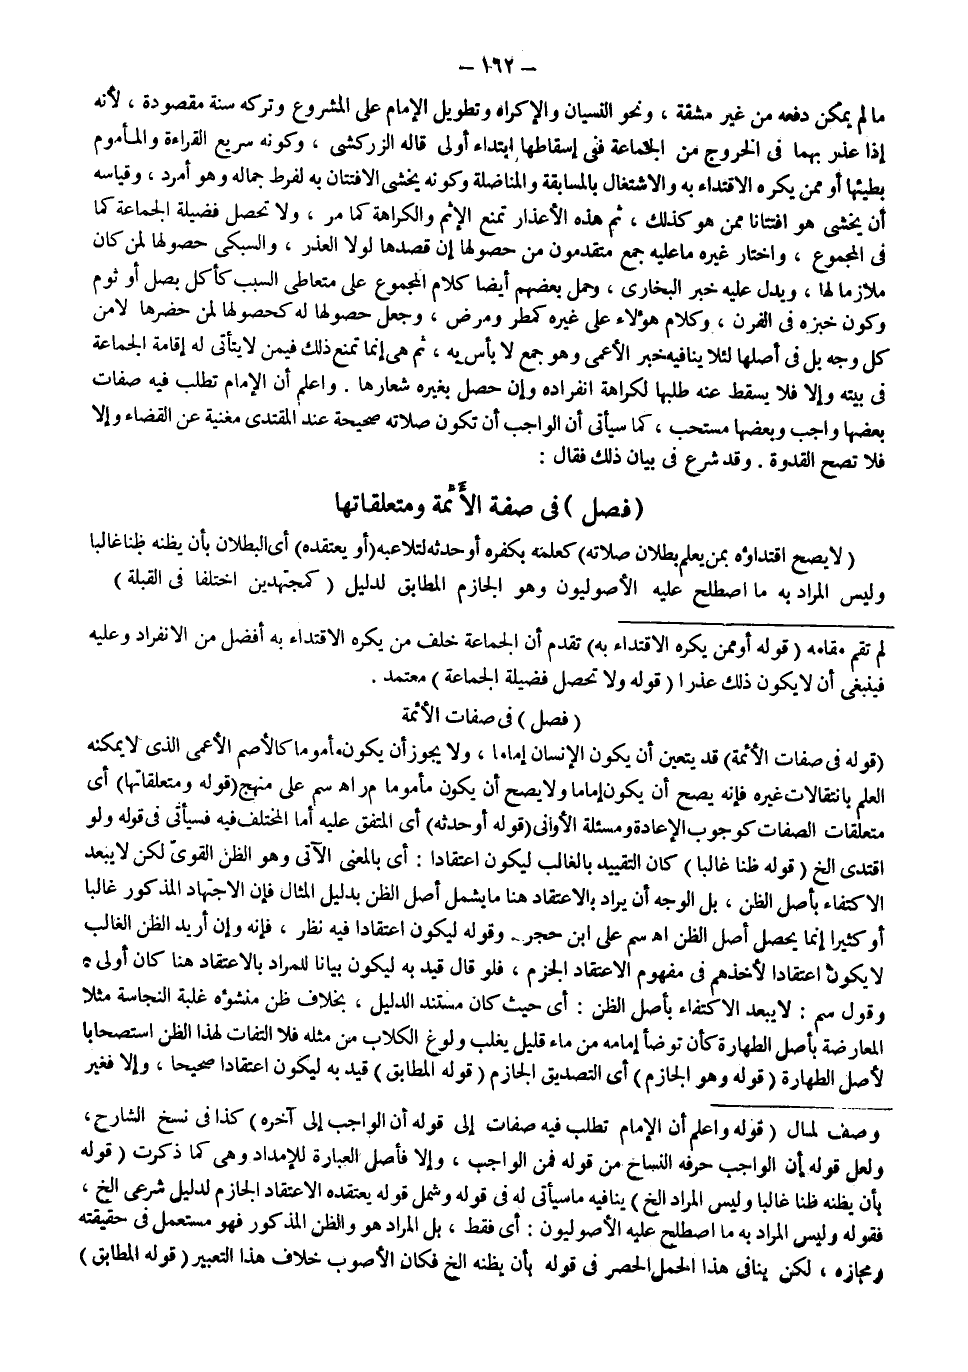 – ١٦٢ –
مالم يمكن دفعه من غير مشقة ، ونحو النسيان والإكراه وتطويل الإمام على المشروع وتركه سنة مقصودة ، لأنه
إذا عذر بهما فى الخروج من الجماعة ففى إسقاطها ابتداء أولى قاله الزركشى ، وكونه سريع القراءة والمأموم
بطيئها أو ممن يكره الاقتداء به والاشتغال بالمسابقة والمناضلة وكونه يخشى الافتتان به لفرط جماله وهو أمرد ، وقياسه
أن يخشى هو افتتانا ممن هو كذلك ، ثم هذه الأعذار تمنع الإثم والكراهة كما مر ، ولا تحصل فضيلة الجماعة كما
فى المجموع ، واختار غيره ماعليه جمع متقدمون من حصولها إن قصدها لولا العذر ، والسبكى حصولها لمن كان
ملازما لها ، ويدل عليه خبر البخارى ، وحمل بعضهم أيضا كلام المجموع على متعاطى السبب كأكل بصل أو ثوم
وكون خبزه فى الفرن ، وكلام هؤلاء على غيره كمطر ومرض ، وجعل حصولها له كحصولها لمن حضرها لامن
كل وجه بل فى أصلها لئلا ينافيه خبر الأعمى وهو جمع لا بأس به ، ثم هى إنما تمنع ذلك فيمن لايتأتى له إقامة الجماعة
فى بيته وإلا فلا يسقط عنه طلبها لكراهة انفراده وإن حصل بغيره شعارها . واعلم أن الإمام تطلب فيه صفات
بعضها واجب وبعضها مستحب ، كما سيأتى أن الواجب أن تكون صلاته صحيحة عند المقتدى مغنية عن القضاء وإلا
فلا تصح القدوة . وقد شرع فى بيان ذلك فقال :
( فصل ) فى صفة الأئمة ومتعلقاتها
( لايصح اقتداؤه بمن يعلم بطلان صلاته) كعلمه بكفره أو حدثه لتلاعبه (أو يعتقده) أى البطلان بأن يظنه ظنا غالبا
وليس المراد به ما اصطلح عليه الأصوليون وهو الجازم المطابق لدليل ( كمجتهدين اختلفا فى القبلة )
لم تقم مقامه ( قوله أوممن يكره الاقتداء به) تقدم أن الجماعة خلف من يكره الاقتداء به أفضل من الانفراد وعليه
فينبغى أن لايكون ذلك عذرا ( قوله ولا تحصل فضيلة الجماعة ) معتمد .
( فصل ) فى صفات الأئمة
(قوله فى صفات الأئمة) قد يتعين أن يكون الإنسان إماما ، ولا يجوز أن يكون مأموما كالأصم الأعمى الذى لايمكنه
العلم بانتقالات غيره فإنه يصح أن يكون إماما ولايصح أن يكون مأموما م ر اه سم على منهج (قوله ومتعلقاتها) أى
متعلقات الصفات كوجوب الإعادة ومسئلة الأوانى (قوله أو حدثه) أى المتفق عليه أما المختلف فيه فسيأتى فى قوله ولو
اقتدى الخ ( قوله ظنا غالبا ) كان التقييد بالغالب ليكون اعتقادا : أى بالمعنى الآتى وهو الظن القوىّ لكن لايبعد
الاكتفاء بأصل الظن ، بل الوجه أن يراد بالاعتقاد هنا مايشمل أصل الظن بدليل المثال فإن الاجتهاد المذكور غالبا
أو كثيرا إنما يحصل أصل الظن اه سم على ابن حجر . وقوله ليكون اعتقادا فيه نظر ، فإنه وإن أريد الظن الغالب
لا يكون اعتقادا لأخذهم فى مفهوم الاعتقاد الجزم ، فلو قال قيد به ليكون بيانا للمراد بالاعتقاد هنا كان أولى
وقول سم : لايبعد الاكتفاء بأصل الظن : أى حيث كان مستند الدليل ، بخلاف ظن منشؤه غلبة النجاسة مثلا
المعارضة بأصل الطهارة كأن توضأ إمامه من ماء قليل يغلب ولوغ الكلاب من مثله فلا التفات لهذا الظن استصحابا
لأصل الطهارة ( قوله وهو الجازم ) أى التصديق الجازم ( قوله المطابق ) قيد به ليكون اعتقادا صحيحا ، وإلا فغير
وصف لمال ( قوله واعلم أن الإمام تطلب فيه صفات إلى قوله أن الواجب إلى آخره ) كذا فى نسخ الشارح ،
ولعل قوله أن الواجب حرفه النساخ من قوله فمن الواجب ، وإلا فأصل العبارة للإمداد وهى كما ذكرت ( قوله
بأن يظنه ظنا غالبا وليس المراد الخ ) ينافيه ماسيأتى له فى قوله وشمل قوله يعتقده الاعتقاد الجازم لدليل شرعى الخ ،
فقوله وليس المراد به ما اصطلح عليه الأصوليون : أى فقط ، بل المراد هو والظن المذكور فهو مستعمل فى حقيقته
ومجازه ، لكن ينافى هذا الحمل الحصر فى قوله بأن يظنه الخ فكان الأصوب خلاف هذا التعبير ( قوله المطابق )